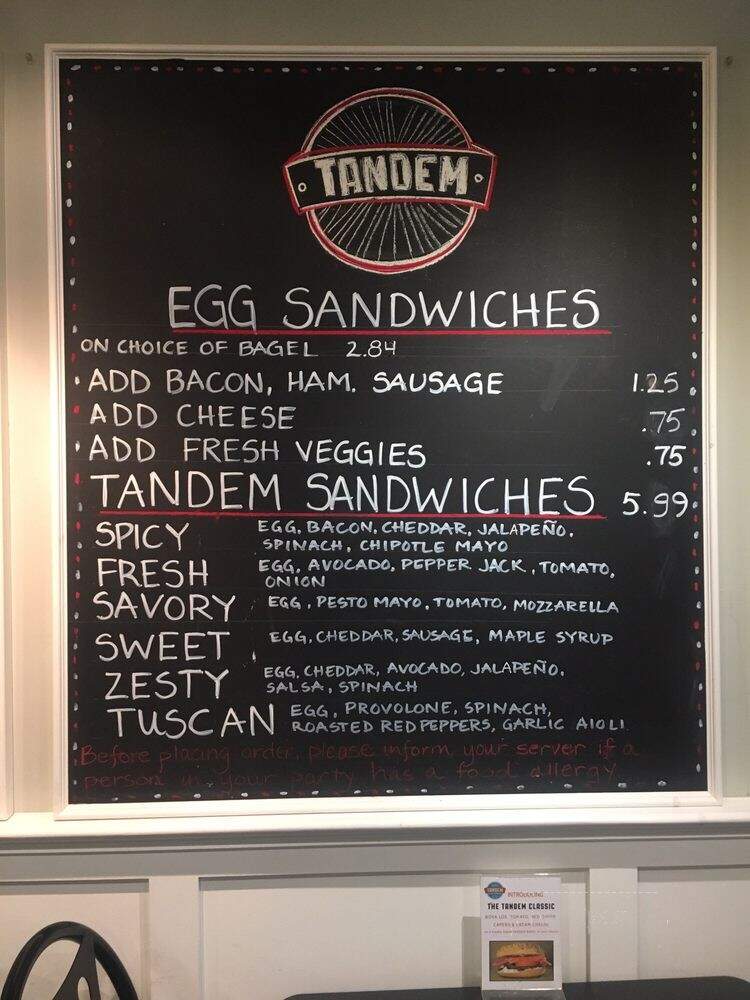 TANDEM
EGG SANDWICHES
ON CHOICE OF BAGEL 2.84
• ADD BACON, HAM. SAUSAGE 1.25
ADD CHEESE .75
• ADD FRESH VEGGIES .75
TANDEM SANDWICHES 5.99
SPICY EGG, BACON, CHEDDAR, JALAPEÑO,
SPINACH, CHIPOTLE MAYO
FRESH EGG, AVOCADO, PEPPER JACK, TOMATO,
ONION
SAVORY EGG, PESTO MAYO, TOMATO, MOZZARELLA
SWEET EGG, CHEDDAR, SAUSAGE, MAPLE SYRUP
ZESTY EGG, CHEDDAR, AVOCADO, JALAPEÑO,
SALSA, SPINACH
TUSCAN EGG, PROVOLONE, SPINACH,
ROASTED RED PEPPERS, GARLIC AIOLI
Before placing order, please inform your server if a
person in your party has a food allergy
TANDEM
INTRODUCING
THE TANDEM CLASSIC
NOVA LOX, TOMATO, RED ONION
CAPERS & CREAM CHEESE